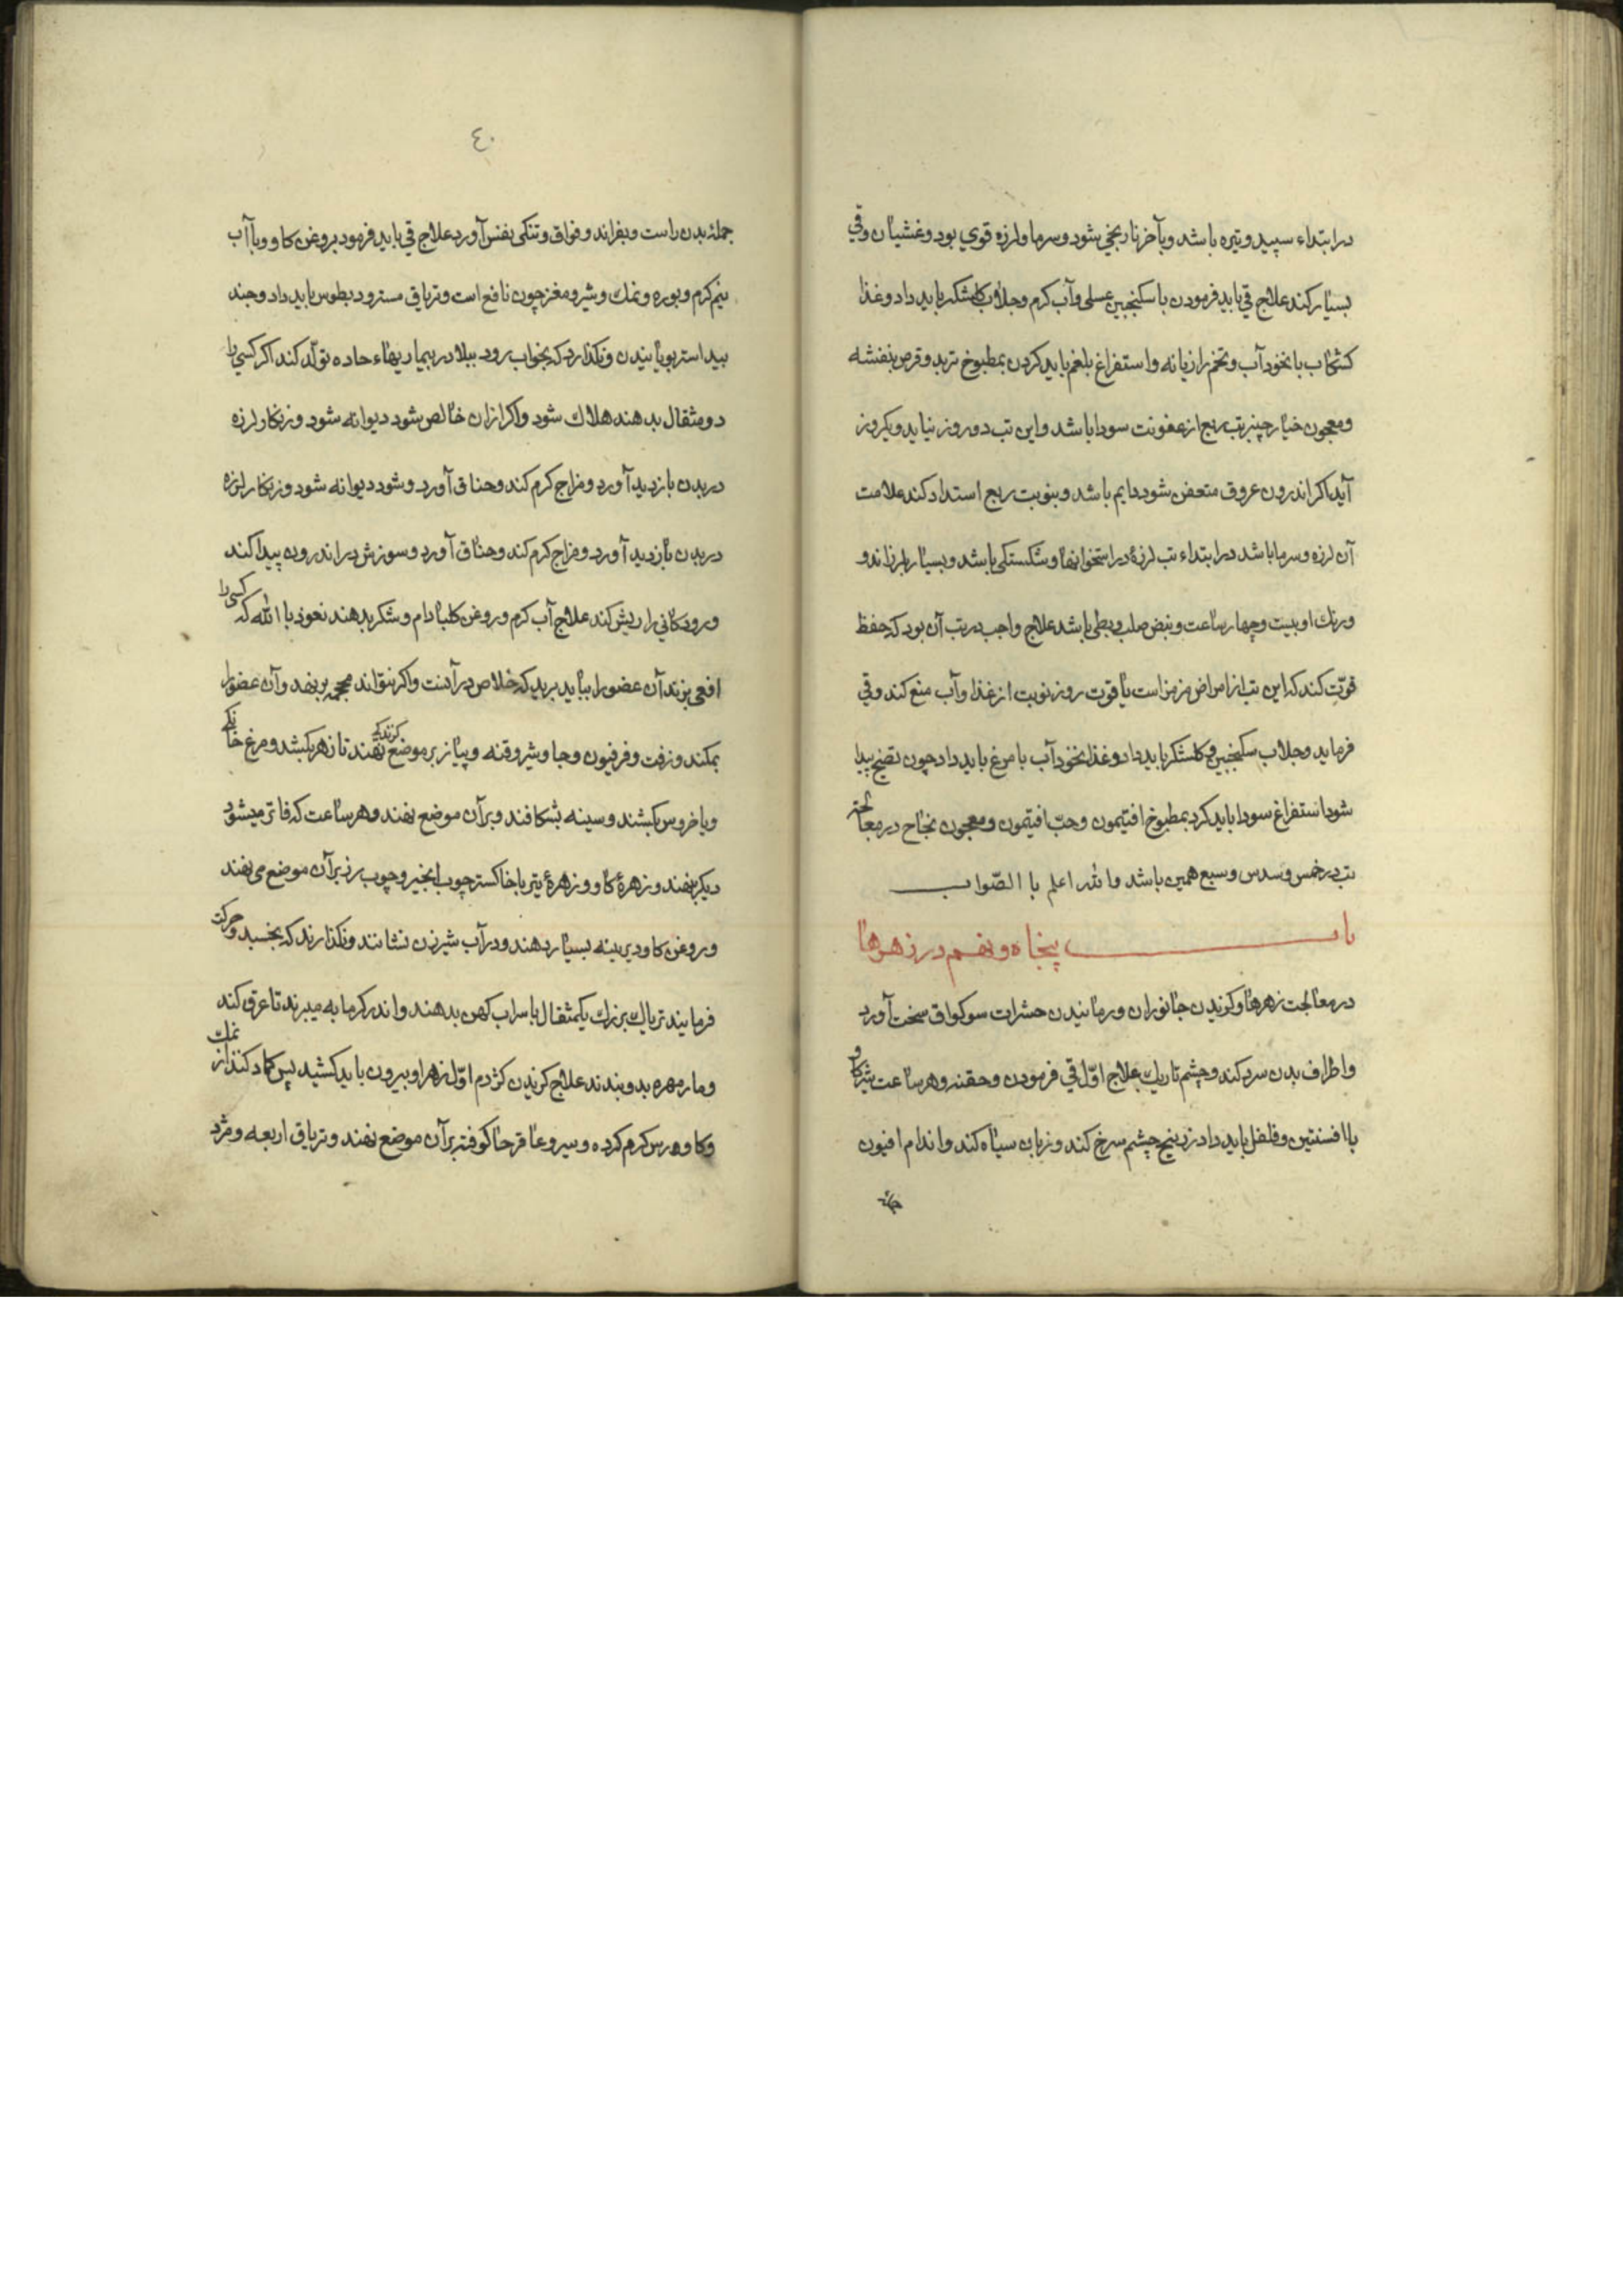 در ابتداء سپید و تیره باشد و بآخر نارنجی شود و سرما و لرزه قوی بود و غشیان و قی
بسیار کند علاج قی باید فرمودن با سکنجبین عسلی و آب کرم و جلاب کلشکر باید داد و غذا
کشکاب با نخود آب و تخم رازیانه و استفراغ بلغم باید کردن بمطبوخ تربد و قرص بنفشه
و معجون خیار چنبر تب ربع از عفونت سودا باشد و این تب دو روز نیاید و یکروز
آید اکر اندرون عروق متعفن شود دایم باشد و بنوبت ربع استداد کند علامت
آن لرزه و سرما باشد در ابتداء تب لرزهٔ در استخوانها و شکستکی باشد و بسیار بلرزاند و
ورنك او بیست و چهار ساعت و نبض صلب و بطی باشد علاج واجب در تب آن بود که حفظ
قوّت کند که این تب از امراض مزمن است با قوت روز نوبت از غذا و آب منع کند و قی
فرماید و جلاب سکنجبین و کلشکر باید داد و غذا نخود آب با مرغ باید داد چون نضج پیدا
شود استفراغ سودا باید کرد بمطبوخ افتیمون و حبّ افتیمون و معجون نجاح در معالجت
تب در خمس و سدس و سبع همین باشد والله اعلم با الصّواب
باب پنجاه و نهم در زهرها
در معالجت زهرها و کزیدن جانوران و رمانیدن حشرات سوکواق سخت آورد
و اطراف بدن سرد کند و چشم تاریك علاج اوّل قی فرمودن و حقنه و هر ساعت شیر کاو
با افسنتین و فلفل باید داد زرنیخ چشم سرخ کند و زبان سیاه کند و اندام افیون
جمله
٤٠
جملهٔ بدن راست و بفراند و فواق و تنکی نفس آورد علاج قی باید فرمود بروغن کاو و با آب
نیم کرم و بوره و نمك و شیر و مغز چون نافع است و تریاق مسترود بطوس باید داد و جند
بید استر بویانیدن و نکذارد که بخواب رود ببلادر بیماریهاء حاده تولّد کند اکر کسی را
دو مثقال بدهند هلاك شود و اکر از ان خالص شود دیوانه شود و زنکار لرزه
در بدن باز دید آورد و مزاج کرم کند و حناق آورد و شود دیوانه شود و زنکار لرزه
در بدن باز دید آورد و مزاج کرم کند و حناق آورد و سوزش در اندرون پیدا کند
و رودکانی را ریش کند علاج آب کرم و روغن کلبادام و شکر بدهند نعوذ با الله که کسی را
افعی بزند آن عضو را بباید برید که خلاص در آنست و اکر نتواند محجمه بر نهد و آن عضو را
بمکند و زفت و فرفیون و جاوشیر و قنه و پیاز بر موضع کزندکی نهند تا زهر بکشد و مرغ خانکی
و یا خروس بکشند و سینه بشکافند و بر آن موضع نهند و هر ساعت که فاتر میشود
دیکر نهند و زهرهٔ کاو و زهرهٔ بتر با خاکستر چوب انجیر و چوب رز بر آن موضع می نهند
و روغن کاو دیرینه بسیار دهند و در آب شیرزن نشانند و نکذارند که بخسبد و حرکت
فرمایند تریاك بزرك یکمثقال با سراب کهن بدهند و اندر کرمابه میبرند تا عرق کند
و مار مهره بدو بندند علاج کزیدن کژدم اوّل زهر او بیرون باید کشید پس کماد کنند از نمك
و کاورس کرم کرده و سیر و عاقرحا کوفته بر آن موضع نهند و تریاق اربعه و مژد